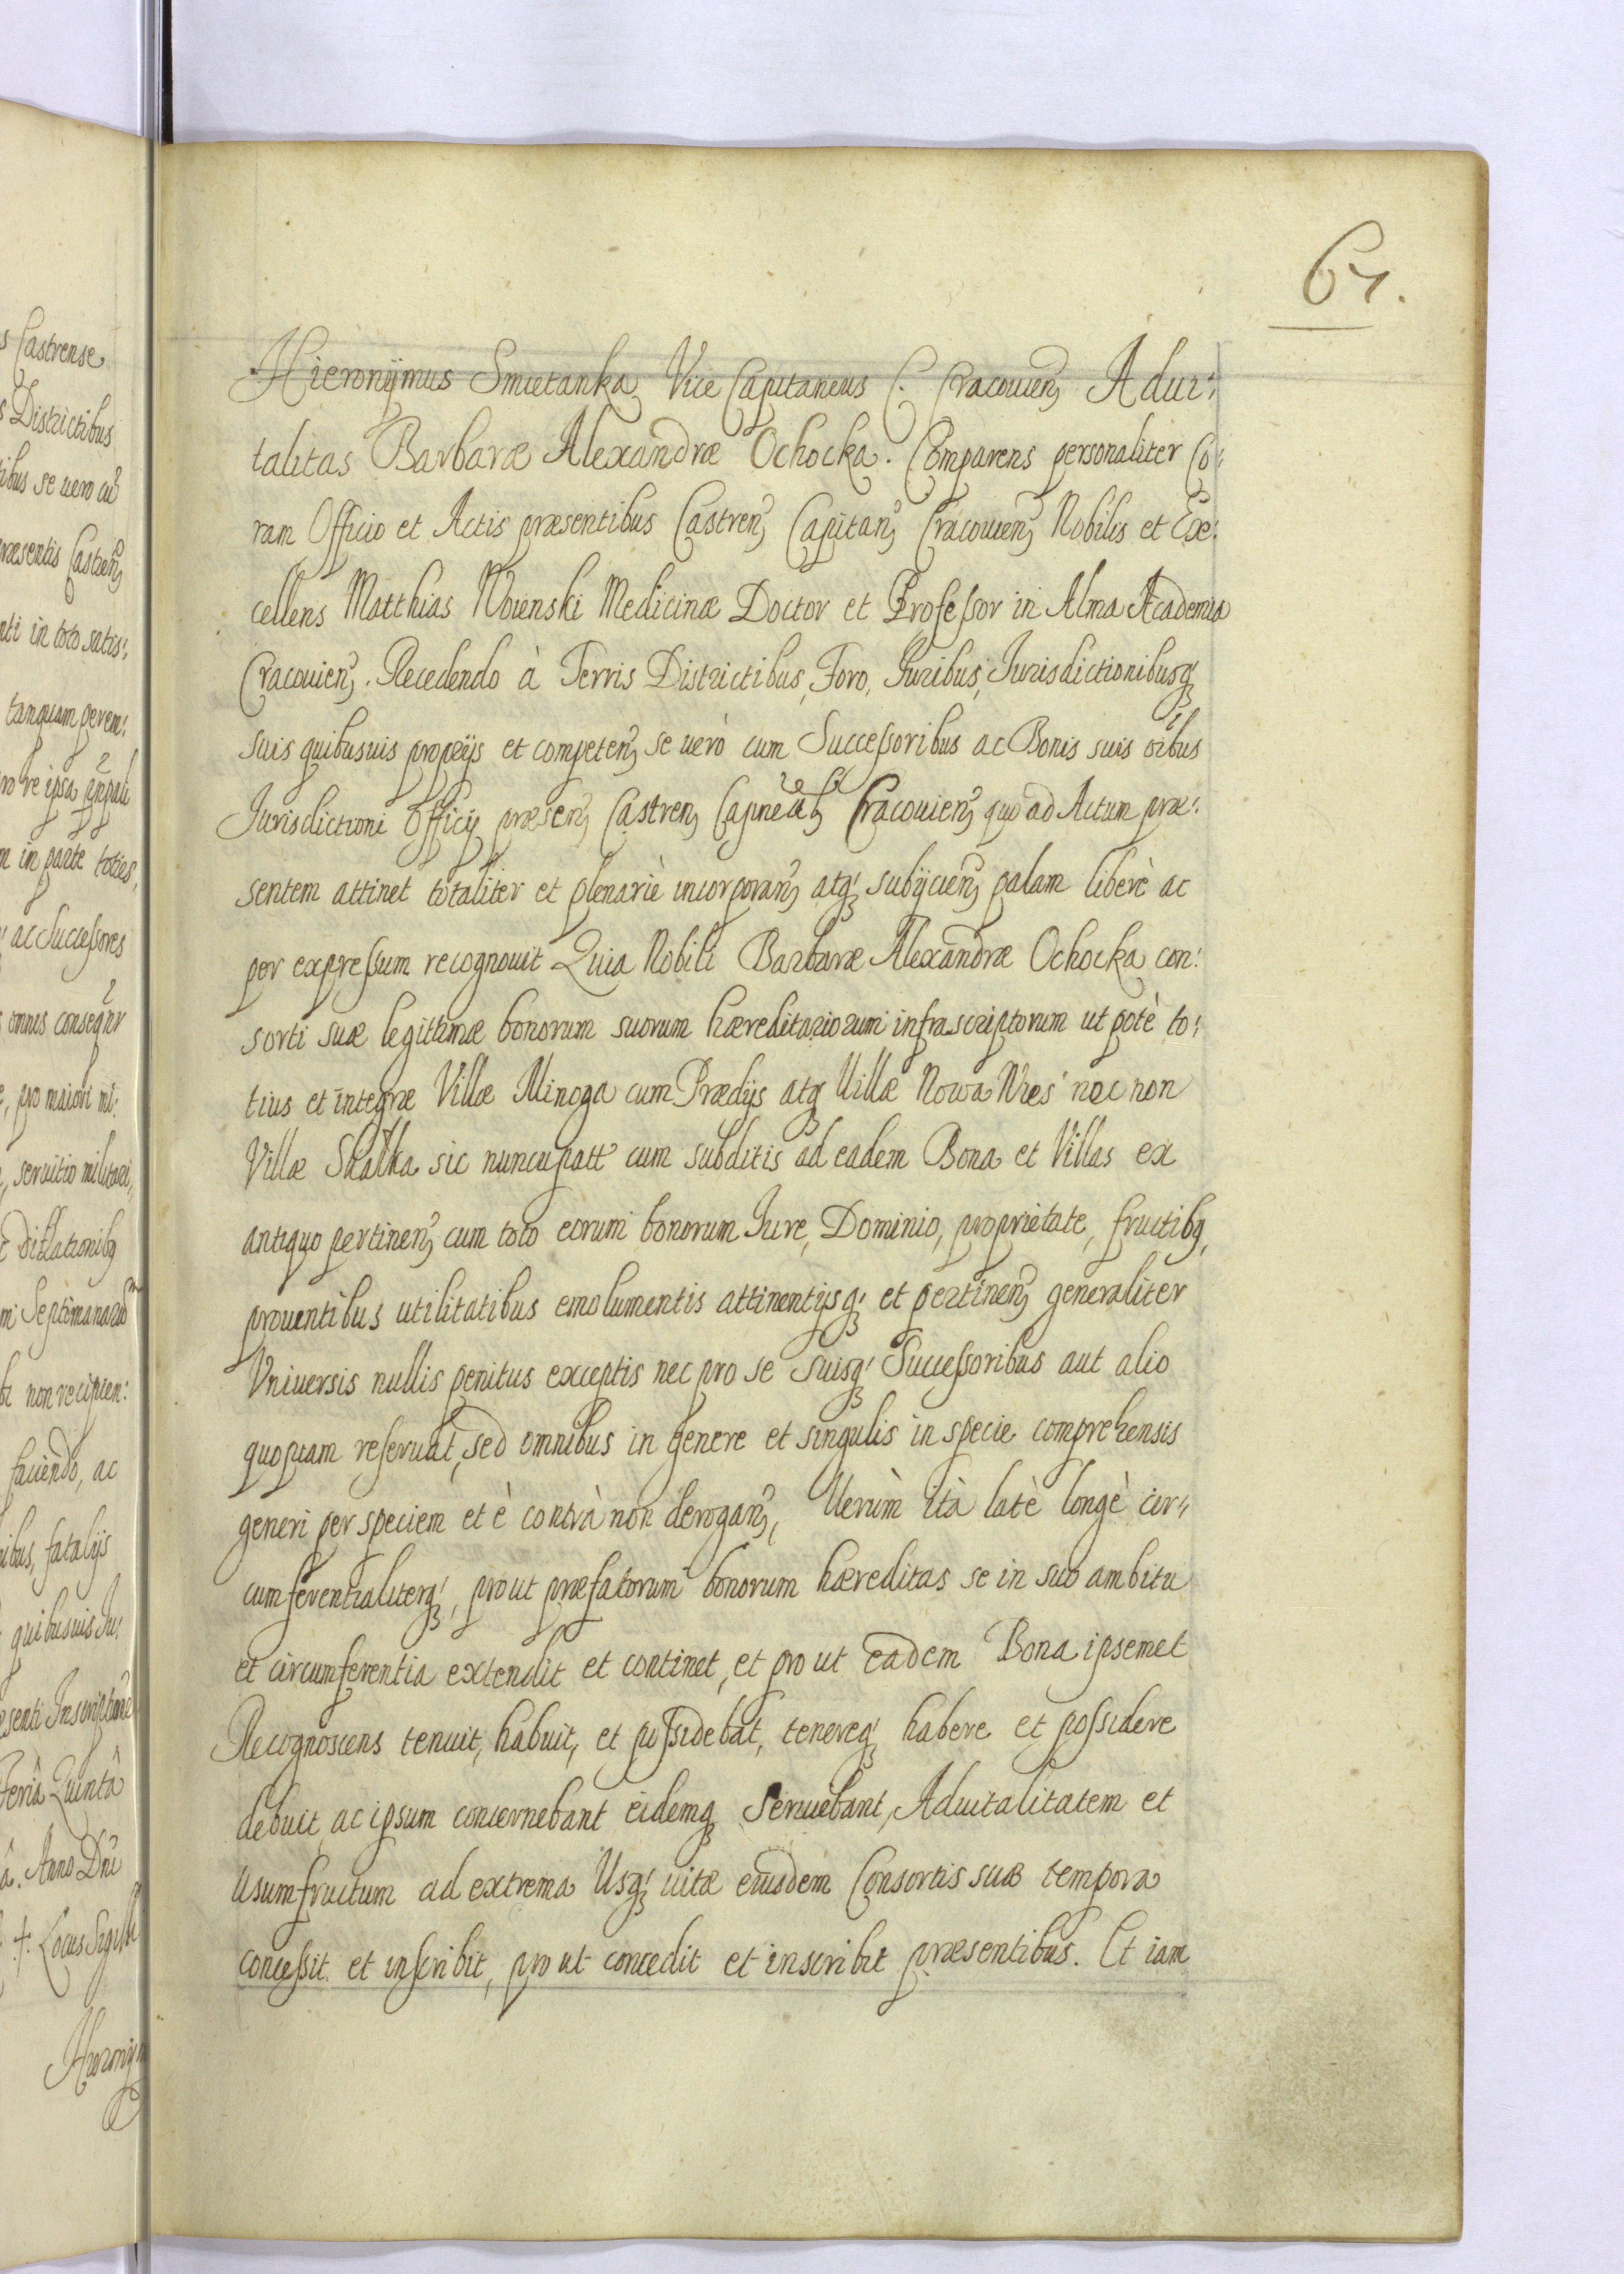 67.
Hieronymus Smietanka Vice Capitaneus C. Cracouien Adui:
talitas Barbaræ Alexandræ Ochocka. Comparens personaliter Co:
ram Officio et Actis præsentibus Castren Capitan Cracouien Nobilis et Ex:
cellens Matthias Woienski Medicinæ Doctor et Professor in Alma Academia
Cracouien. Recedendo à Terris Districtibus, Foro, Juribus, Jurisdictionibusq
suis quibusuis proprijs et competen se uerò cum Successoribus ac Bonis suis oibus
Jurisdictioni Officij præsen Castren Cracouien quo ad Actum præ:
sentem attinet totaliter et plenariè incorporan atq subijcien palam liberè ac
per expressum recognouit Quia Nobili Barbaræ Alexandræ Ochocka con:
sorti suæ legittimæ bonorum suorum hæreditariorum infrascriptorum ut potè to:
tius et integræ Villæ Minoga cum Prædijs atq Uillæ Nowa Wies nec non
Villæ Skalka sic nuncupatt cum subditis ad eadem Bona et Villas ex
antiquo pertinen cum toto eorum bonorum Jure, Dominio, proprietate, fructibq,
prouentibus utilitatibus emolumentis attinentijsq et pertinen generaliter
Vniuersis nullis penitus exceptis nec pro se suisq Successoribus aut alio
quopiam reseruat, sed omnibus in genere et singulis in specie comprehensis
generi per speciem et è contrà non derogan, Uerùm ità latè longè cir:
cumferentialiterq, prout præfatorum bonorum hæreditas se in suo ambitu
et circumferentia extendit et continet, et pro ut eadem Bona ipsemet
Recognoscens tenuit, habuit, et possidebat, tenereq habere et possidere
debuit ac ipsum concernebant eidemq seruiebant, Aduitalitatem et
Usumfructum ad extrema Usq uitæ eiusdem Consortis suæ tempora
concessit et inscribit, pro ut concedit et inscribit præsentibus. Et iam